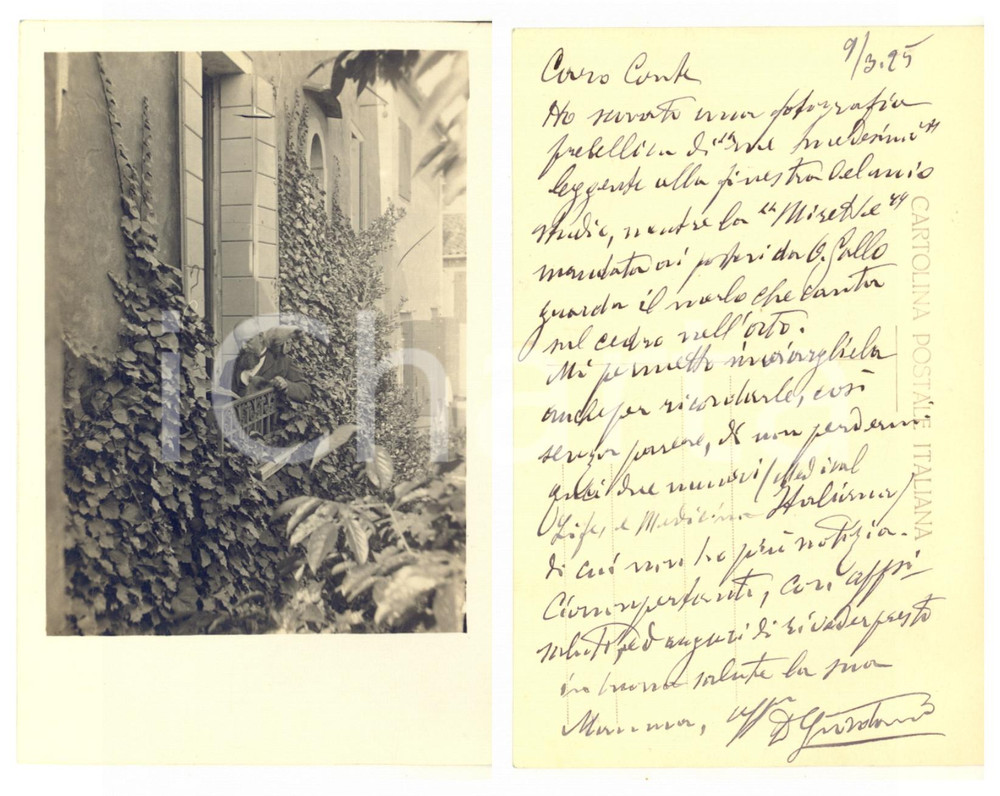 9/3.95
Caro Conte
Ho trovato una fotografia
di "me medesimo"
leggente alla finestra del mio
studio, mentre la
mandata ai posteri da O. Gallo
guarda il merlo che canta
sul cedro nell'orto.
Mi permetto
anche per ricordarle, così
senza parere, di non perdermi
quei due numeri (Medical
Life e Medicina Italiana)
di cui non ho più notizia.
con aff.si
saluti ed auguri di riveder presto
in buona salute la sua
Mamma, aff.
D Giordano
CARTOLINA POSTALE ITALIANA
iCharta